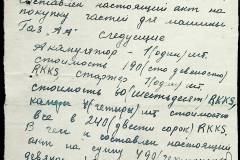 составлен настоящий акт на
покупку частей для машины
Газ. АА" следущие
Акамулятор - 1 (один) шт.
стоимость 190 (сто девяносто)
RKKS стартер 1 (один) шт.
стоимость 60 (шестьдесят) RKKS,
4 (четыре) шт. стоимостю
все в 240 (двести сорок) RKKS.
В чем и составлен настоящий
акт на сумму 490